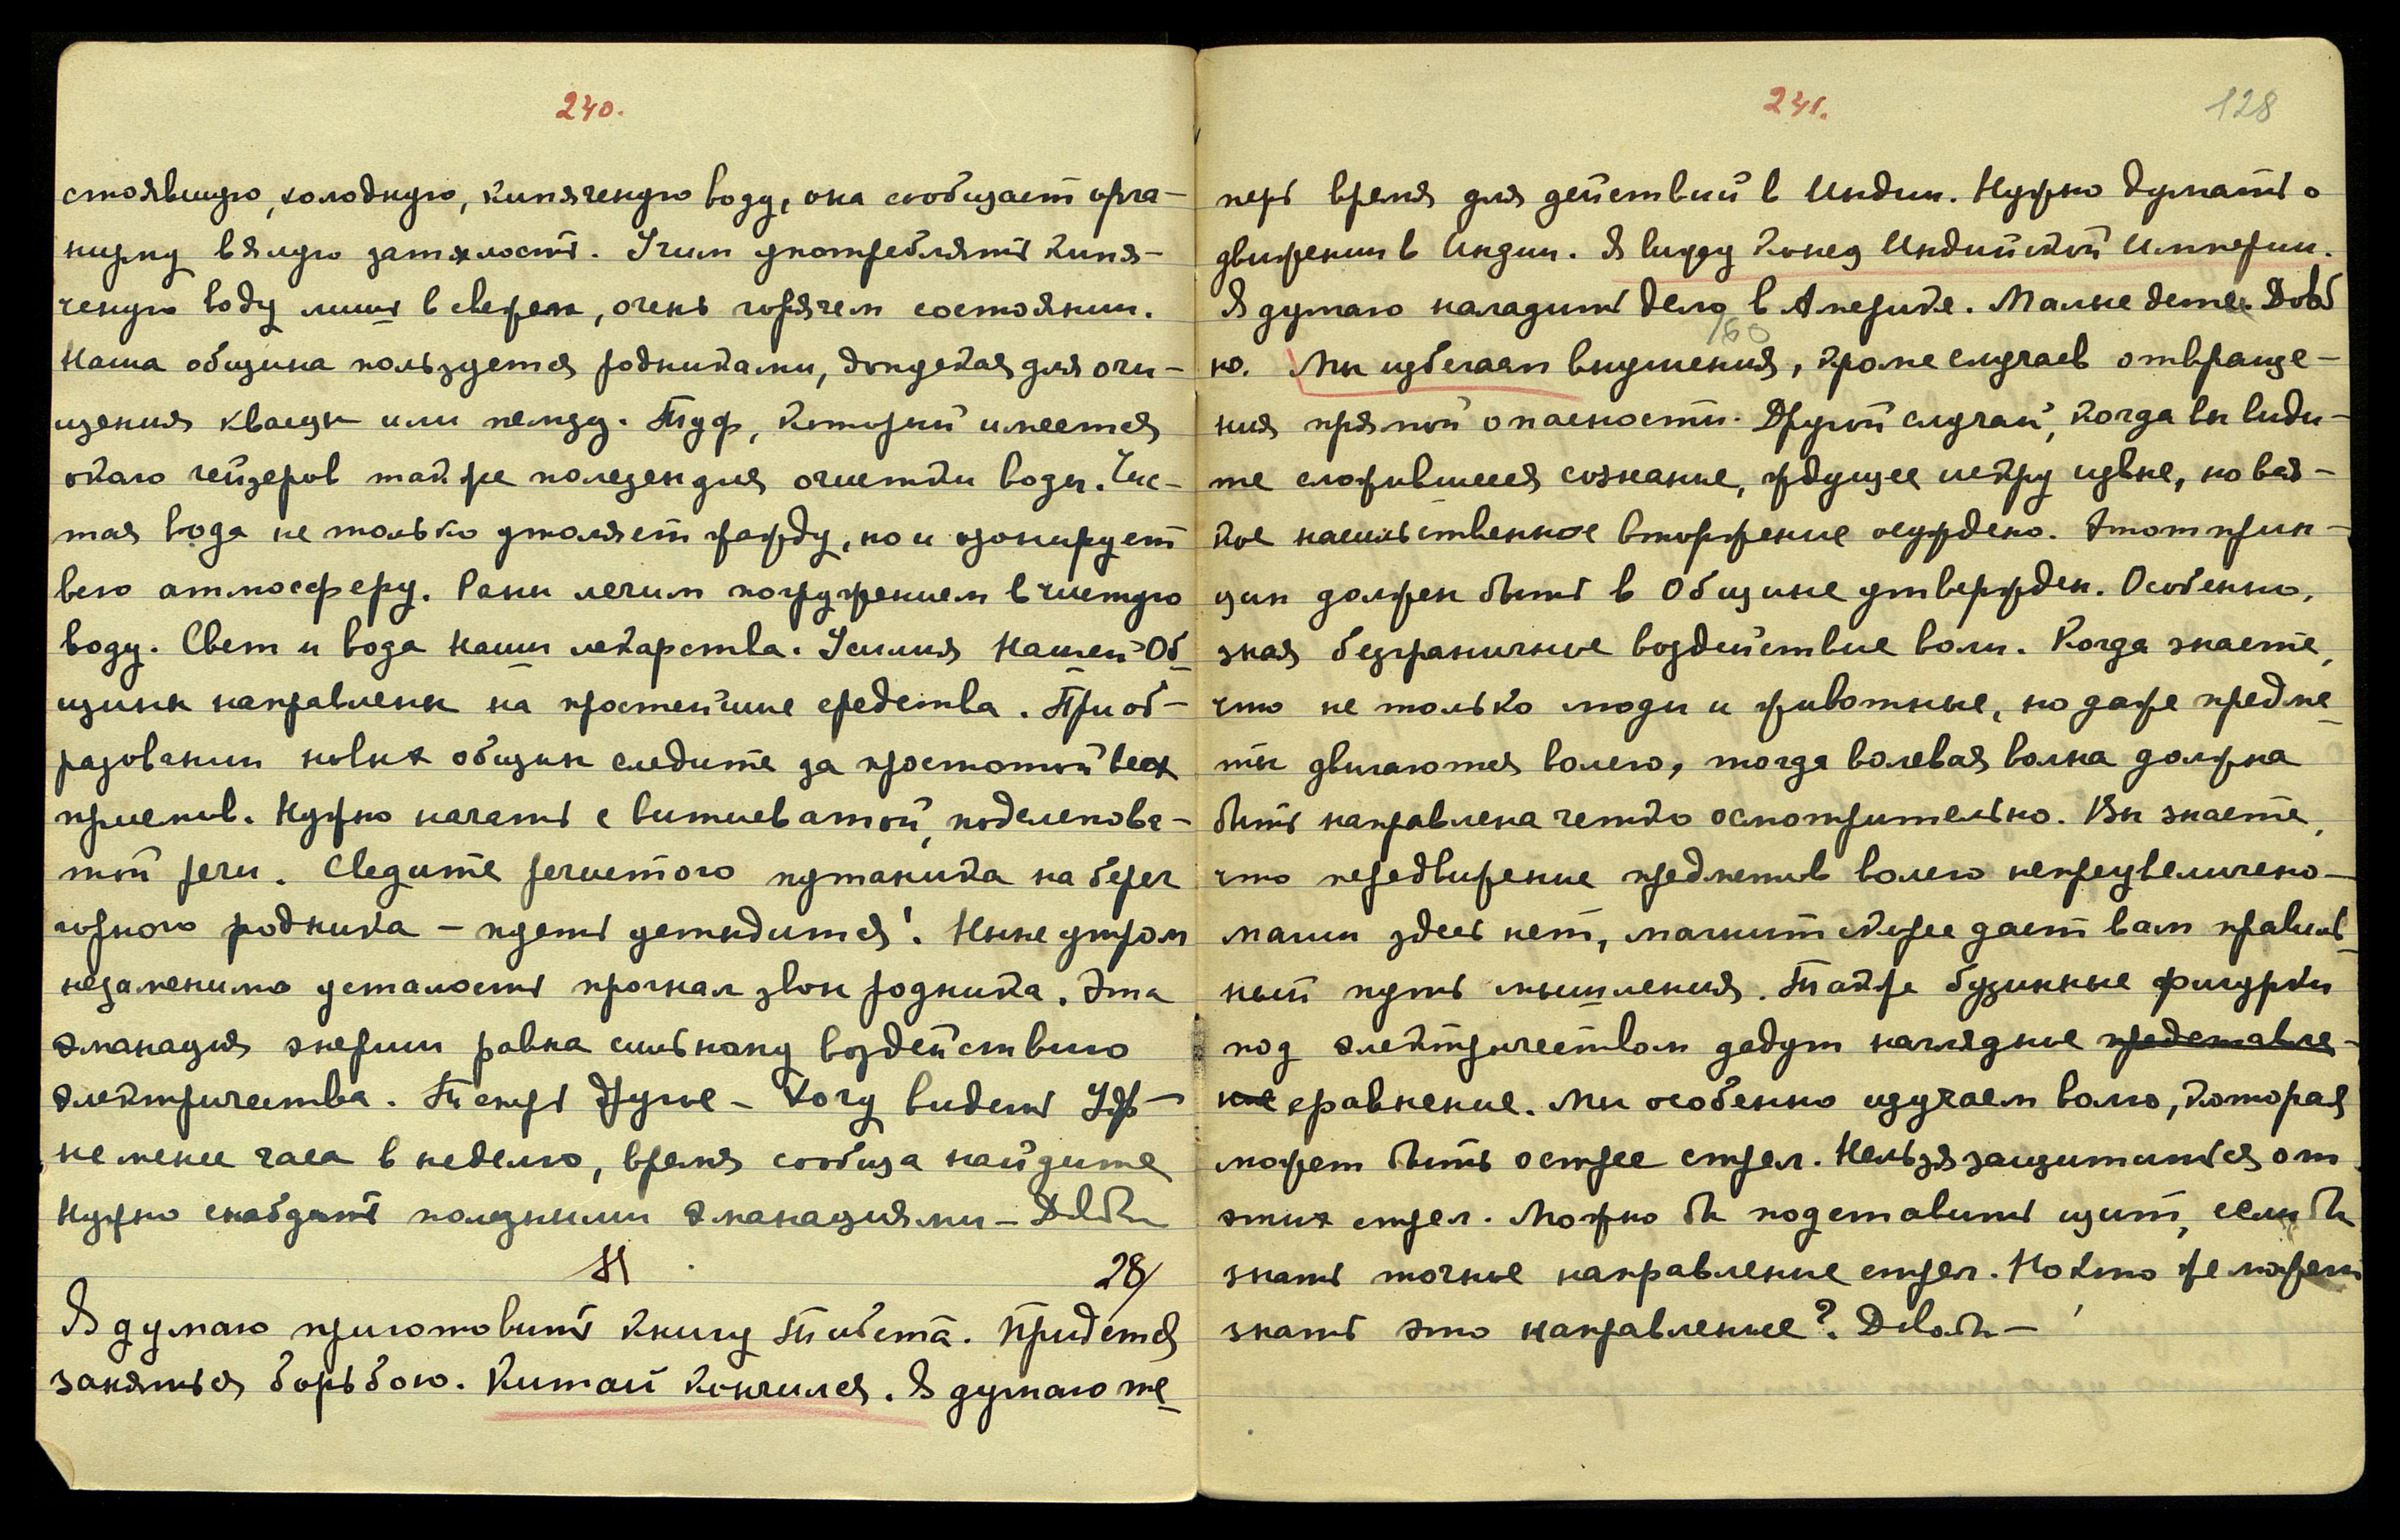 240.
стоявшую, холодную, кипяченую воду, она сообщает орга-
низму вялую затхлость. Учим употреблять кипя-
ченую воду лишь в свежем, очень горячем состоянии.
Наша община пользуется родниками, допуская для очи-
щения кварцы или пемзу. Туф, который имеется
около гейзеров также полезен для очистки воды. Чис-
тая вода не только утоляет жажду, но и озонирует
всю атмосферу. Раны лечим погружением в чистую
воду. Свет и вода наши лекарства. Усилия Нашей Об
щины направлены на простейшие средства. При об-
разовании новых общин следите за простотой всех
приемов. Нужно начать с витиеватой, поделенова-
той речи. Сведите речистого путаника на берег
горного родника – пусть устыдится! Ныне утром
незаменимо усталость прогнал звон родника. Эта
эманация энергии равна сильному воздействию
электричества. Теперь другое – Хочу видеть Удр –
не менее часа в неделю, время сообща найдите
Нужно снабдить полезными эманациями – Довольно
28/
Я думаю приготовить книгу Тибета. Придется
заняться борьбою. Китай кончился. Я думаю те
241.
128
перь время для действий в Индии. Нужно думать о
движении в Индии. Я вижу конец Индийской Империи.
Я думаю наладить дело в Америке. Малые дети. Доволь
но. Мы избегаем внушения, кроме случаев отвраще-
160
ния прямой опасности. Другой случай, когда вы види-
те сложившееся сознание, ждущее искру извне, но вся-
кое насильственное вторжение осуждено. Этот прин-
цип должен быть в Общине утвержден. Особенно,
зная безграничное воздействие воли. Когда знаете,
что не только люди и животные, но даже предме
ты двигаются волею, тогда волевая волна должна
быть направлена четко осмотрительно. Вы знаете,
что передвижение предметов волею непреувеличено –
магии здесь нет, магнит скорее дает вам правиль
ный путь мышления. Также бузинные фигурки
под электричеством дадут наглядное представле-
ние сравнение. Мы особенно изучаем волю, которая
может быть острее стрел. Нельзя защититься от
этих стрел. Можно бы подставить щит, если бы
знать точное направление стрел. Но кто же может
знать это направление?. Довольно –